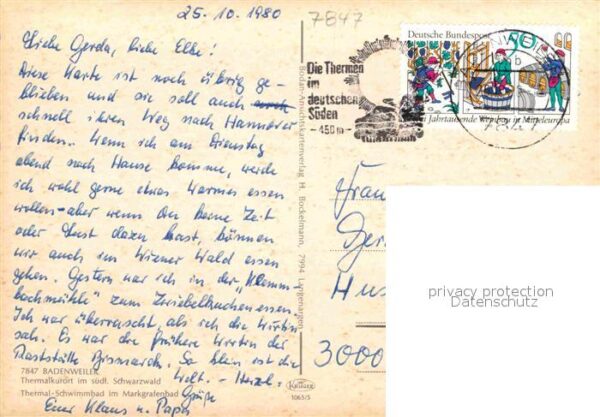 25.10.1980
7847
Liebe Gerda, liebe Elke!
Diese Karte ist noch übrig ge-
blieben und sie soll auch
schnell ihren Weg nach Hannover
finden. Wenn ich am Dienstag
abend nach Hause komme, werde
ich wohl gerne etwas Warmes essen
wollen - aber wenn Du keine Zeit
oder Lust dazu hast, können
wir auch im Wiener Wald essen
gehen. Gestern war ich in der "Klemm-
bachmühle" zum Zwiebelkuchenessen.
Ich war überrascht, als ich die Wirtin
sah. Es war die frühere Wirtin der
Raststätte Bismarck. So klein ist die
Welt. - Herzl.
Grüße
Euer Klaus u. Papa
7847 BADENWEILER
Thermalkurort im südl. Schwarzwald
Thermal-Schwimmbad im Markgrafenbad
Bodan-Ansichtskartenverlag H. Bockelmann, 7994 Langenargen
1065/5
Die Thermen
im
deutschen
Süden
- 450 m -
Deutsche Bundespost 50
Zwei Jahrtausende Weinbau in Mitteleuropa
b
7847
Frau
Ger
Hus
3000
privacy protection
Datenschutz